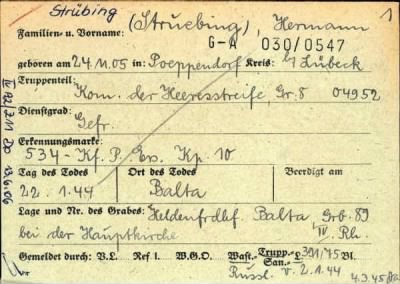 Strübing
1
Familien- u. Vorname: (Struebing), Hermann
G-A 030/0547
geboren am 24.11.05 in Poeppendorf Kreis: b/ Lübeck
Truppenteil: Kom. der Heeresstreife Gr. 8 04952
Dienstgrad: Gefr.
Erkennungsmarke: 534 - Kf. P. Ers. Kp. 10
Tag des Todes Ort des Todes Beerdigt am
22.1.44 Balta
Lage und Nr. des Grabes: Heldenfrdhf. Balta Grb. 89
bei der Hauptkirche IV Rh.
Gemeldet durch: V.L. Ref I. W.G.O. Wast.- Trupp.- San.- L 391/45 Bl.
Russl. v. 2.1.44
4.3.45